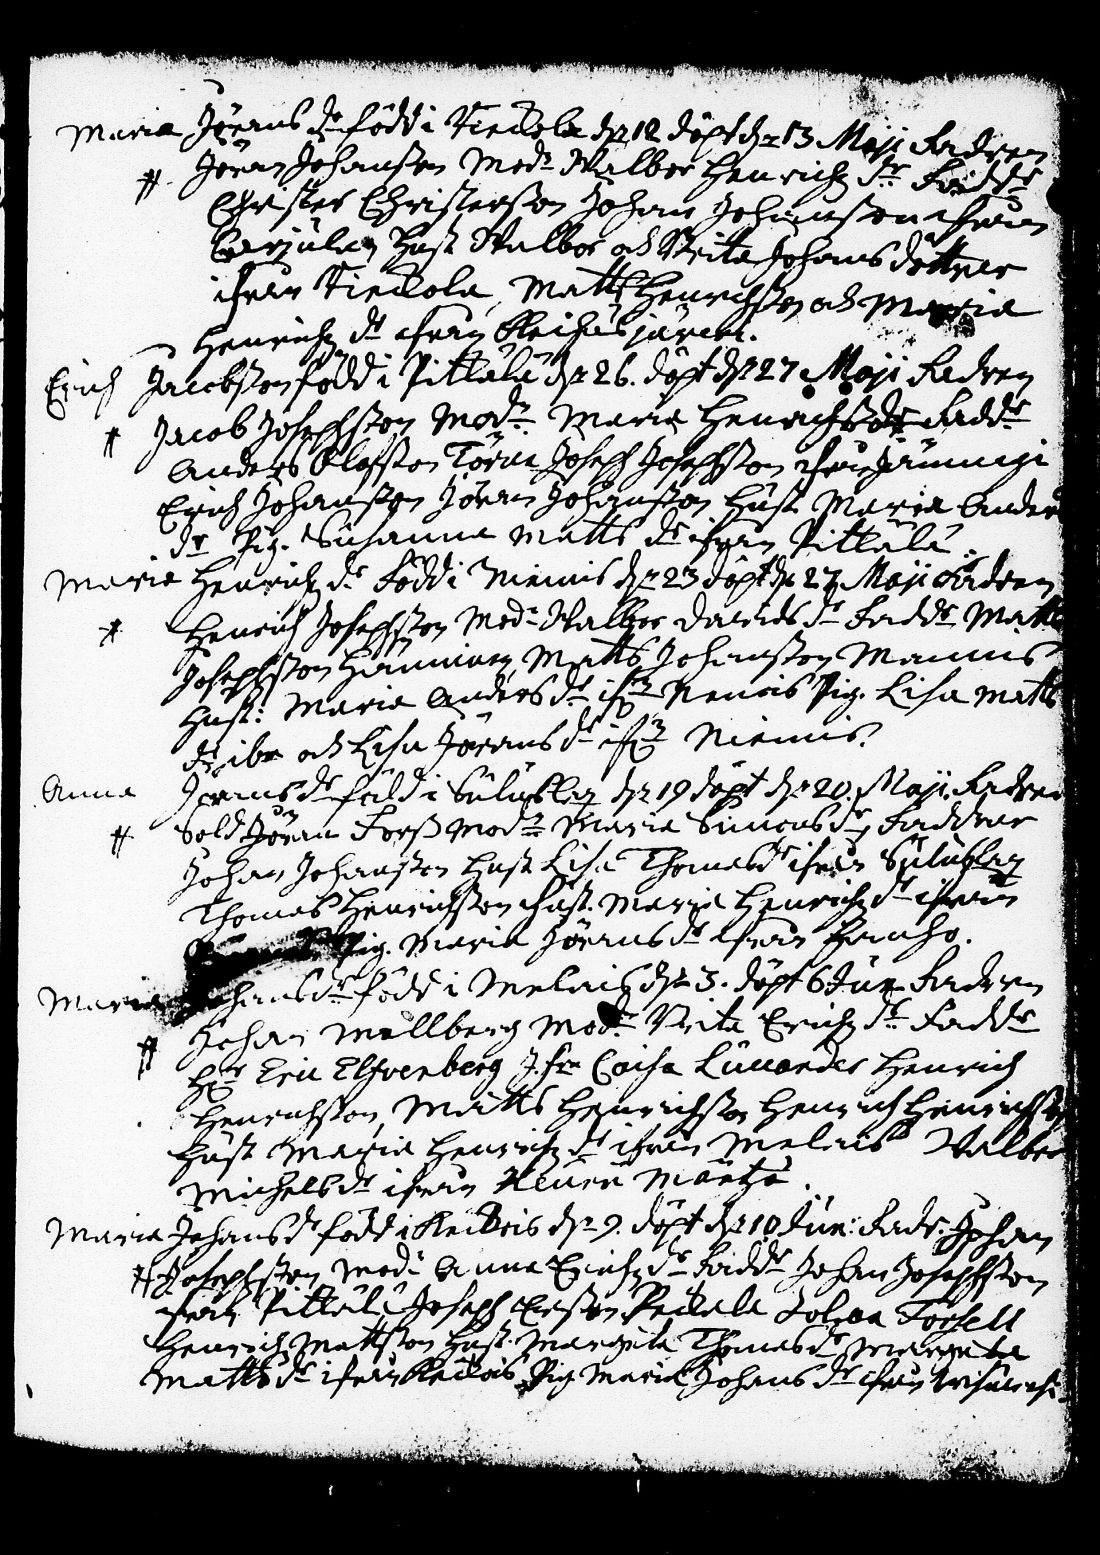 Maria Jörans dr född i Tieckola dn 12 döpt dn 13 Maji Fadren
Jöran Johansson Modr Walbor Henrichz dr Faddr
Christer Christersson Johan Johansson ifrån
Hust Walbor och Brita Johans döttrar
ifrån Tieckola, Matts Henrichsson och Maria
Henrichz dr ifrån
Erich Jacobsson född i Pittälä dn 26. döpt dn 27 Maji Fadren
Jacob Josephsson Modr. Maria Henrichsdr Faddr
Anders Olofsson Törne Joseph Josephsson ifrån
Erich Johansson Jöran Johansson Hust Maria Anders
dr Pig. Susanna Matts dr ifrån Pittälä.
Maria Henrichz dr född i Niemis dn 23 döpt dn 27 Maji Fadren
Henrich Josephsson Modr Walbor Davids dr Faddr Matts
Josephsson Matts Johansson Mannis
Hust: Maria Anders dr ifrn Pig. Lisa Matts
dr ibm och Lisa Jörans dr ifrn Niemis.
Anna Jörans dr född i dn 19 döpt dn 20. Maji. Fadren
Sold Jöran Forss Modr Maria Simons dr Faddrar
Johan Johansson Hust Lisa Thomas dr ifrån
Thomas Henrichsson Hust. Maria Henrichz dr ifrån
Pig. Maria Jörans dr ifrån
Maria Johans dr född i Melais dn 3. döpt 6 Jun Fadren
Johan Mallberg Modr Brita Erichz dr Faddr
Hr Eric Elfvenberg J.fr Caisa Henrich
Henrichsson, Matts Henrichsson Henrich Henrichsson
Hust Maria Henrichz dr ifrån Melais Walbor
Michels dr ifrån
Maria Johans dr född i dn 9. döpt dn 10 Jun: Fadr. Johan
Josephsson Modr Anna Erichz dr Faddr Johan Josephsson
ifrån Pittälä Joseph Ersson Torsell
Henrich Mattsson Hust. Margeta Thomas dr Margeta
Matts dr ifrån Pig Maria Johans dr ifrån